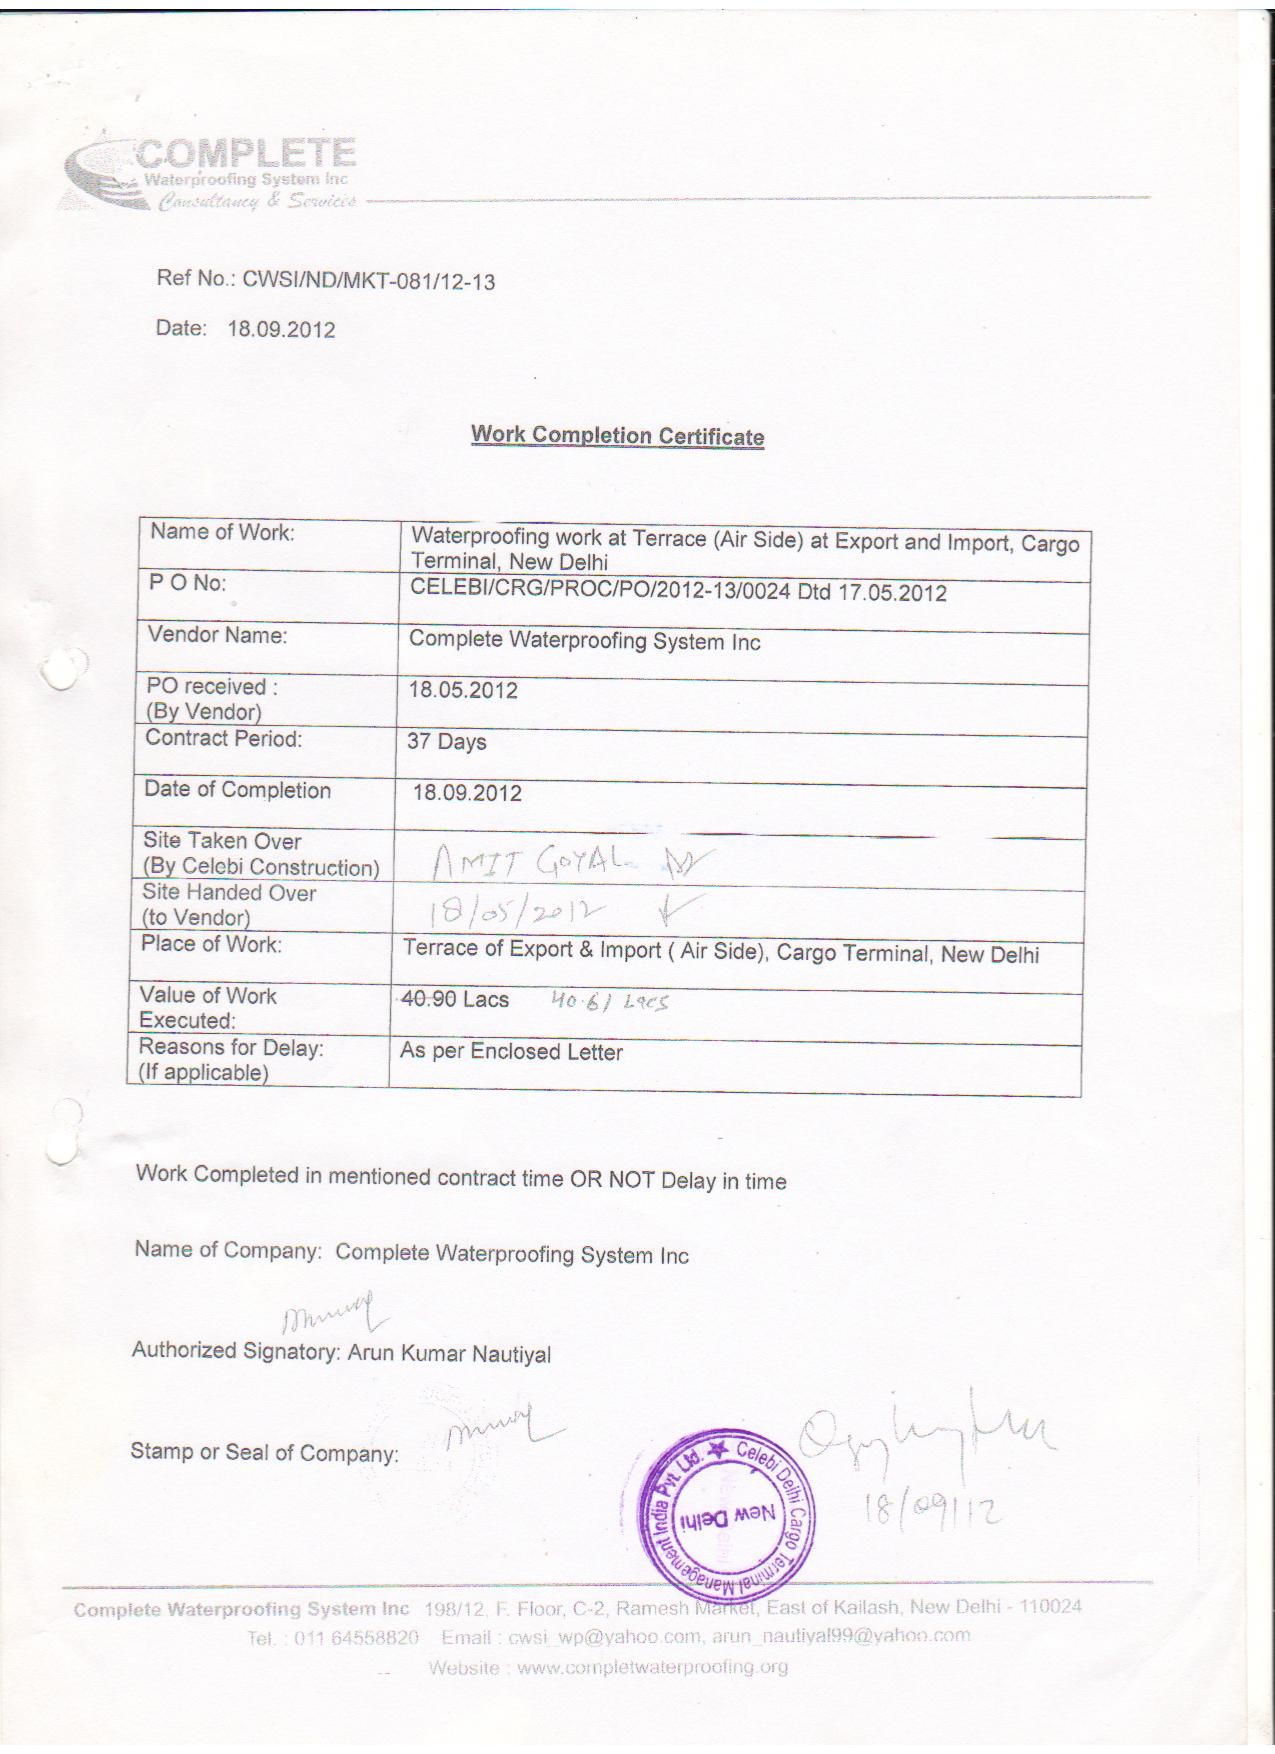 COMPLETE
Waterproofing System Inc
Consultancy & Services
Ref No.: CWSI/ND/MKT-081/12-13
Date: 18.09.2012
Work Completion Certificate
Name of Work: Waterproofing work at Terrace (Air Side) at Export and Import, Cargo
Terminal, New Delhi
P O No: CELEBI/CRG/PROC/PO/2012-13/0024 Dtd 17.05.2012
Vendor Name: Complete Waterproofing System Inc
PO received : 18.05.2012
(By Vendor)
Contract Period: 37 Days
Date of Completion 18.09.2012
Site Taken Over
(By Celebi Construction) AMIT GOYAL
Site Handed Over
(to Vendor) 18/05/2012
Place of Work: Terrace of Export & Import ( Air Side), Cargo Terminal, New Delhi
Value of Work 40.90 Lacs 40.61 Lacs
Executed:
Reasons for Delay: As per Enclosed Letter
(If applicable)
Work Completed in mentioned contract time OR NOT Delay in time
Name of Company: Complete Waterproofing System Inc
Authorized Signatory: Arun Kumar Nautiyal
Stamp or Seal of Company:
Celebi Delhi Cargo Terminal Management India Pvt. Ltd.
New Delhi
18/09/12
Complete Waterproofing System Inc 198/12, F. Floor, C-2, Ramesh Market, East of Kailash, New Delhi - 110024
Tel. : 011 64558820 Email : cwsi_wp@yahoo.com, arun_nautiyal99@yahoo.com
Website : www.completwaterproofing.org